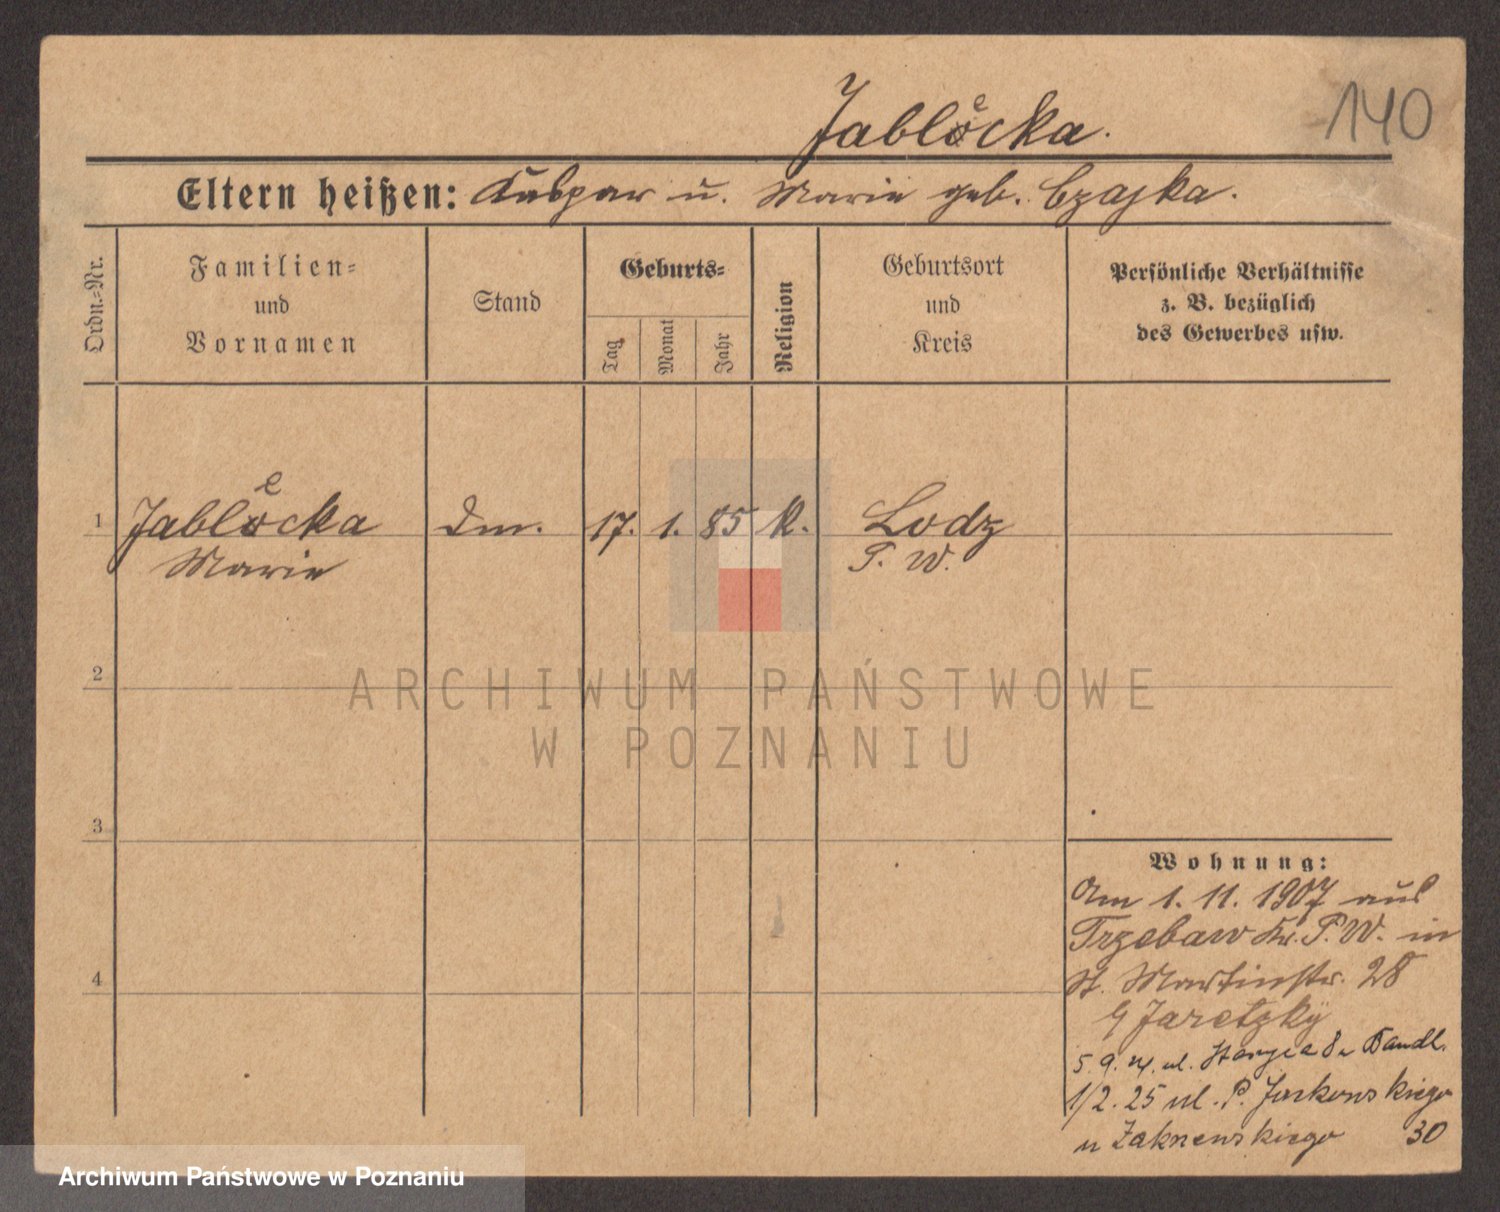 Jablecka.
140
Eltern heißen: Kaspar u. Marie geb. Czajka.
Ordn.-Nr.
Familien-
und
Vornamen
Stand
Geburts-
Tag
Monat
Jahr
Religion
Geburtsort
und
Kreis
Persönliche Verhältnisse
z. B. bezüglich
des Gewerbes usw.
1 Jablecka Dm. 17. 1. 85 K. Lodz
Marie P. W.
2
ARCHIWUM PAŃSTWOWE
W POZNANIU
3
Wohnung:
Am 1. 11. 1907 aus
Trzebaw Kr. P. W. in
4
St. Martinstr. 28
Jaretzky
5. 9. ul. 8
1/2. 25 ul. P.
u 30
Archiwum Państwowe w Poznaniu